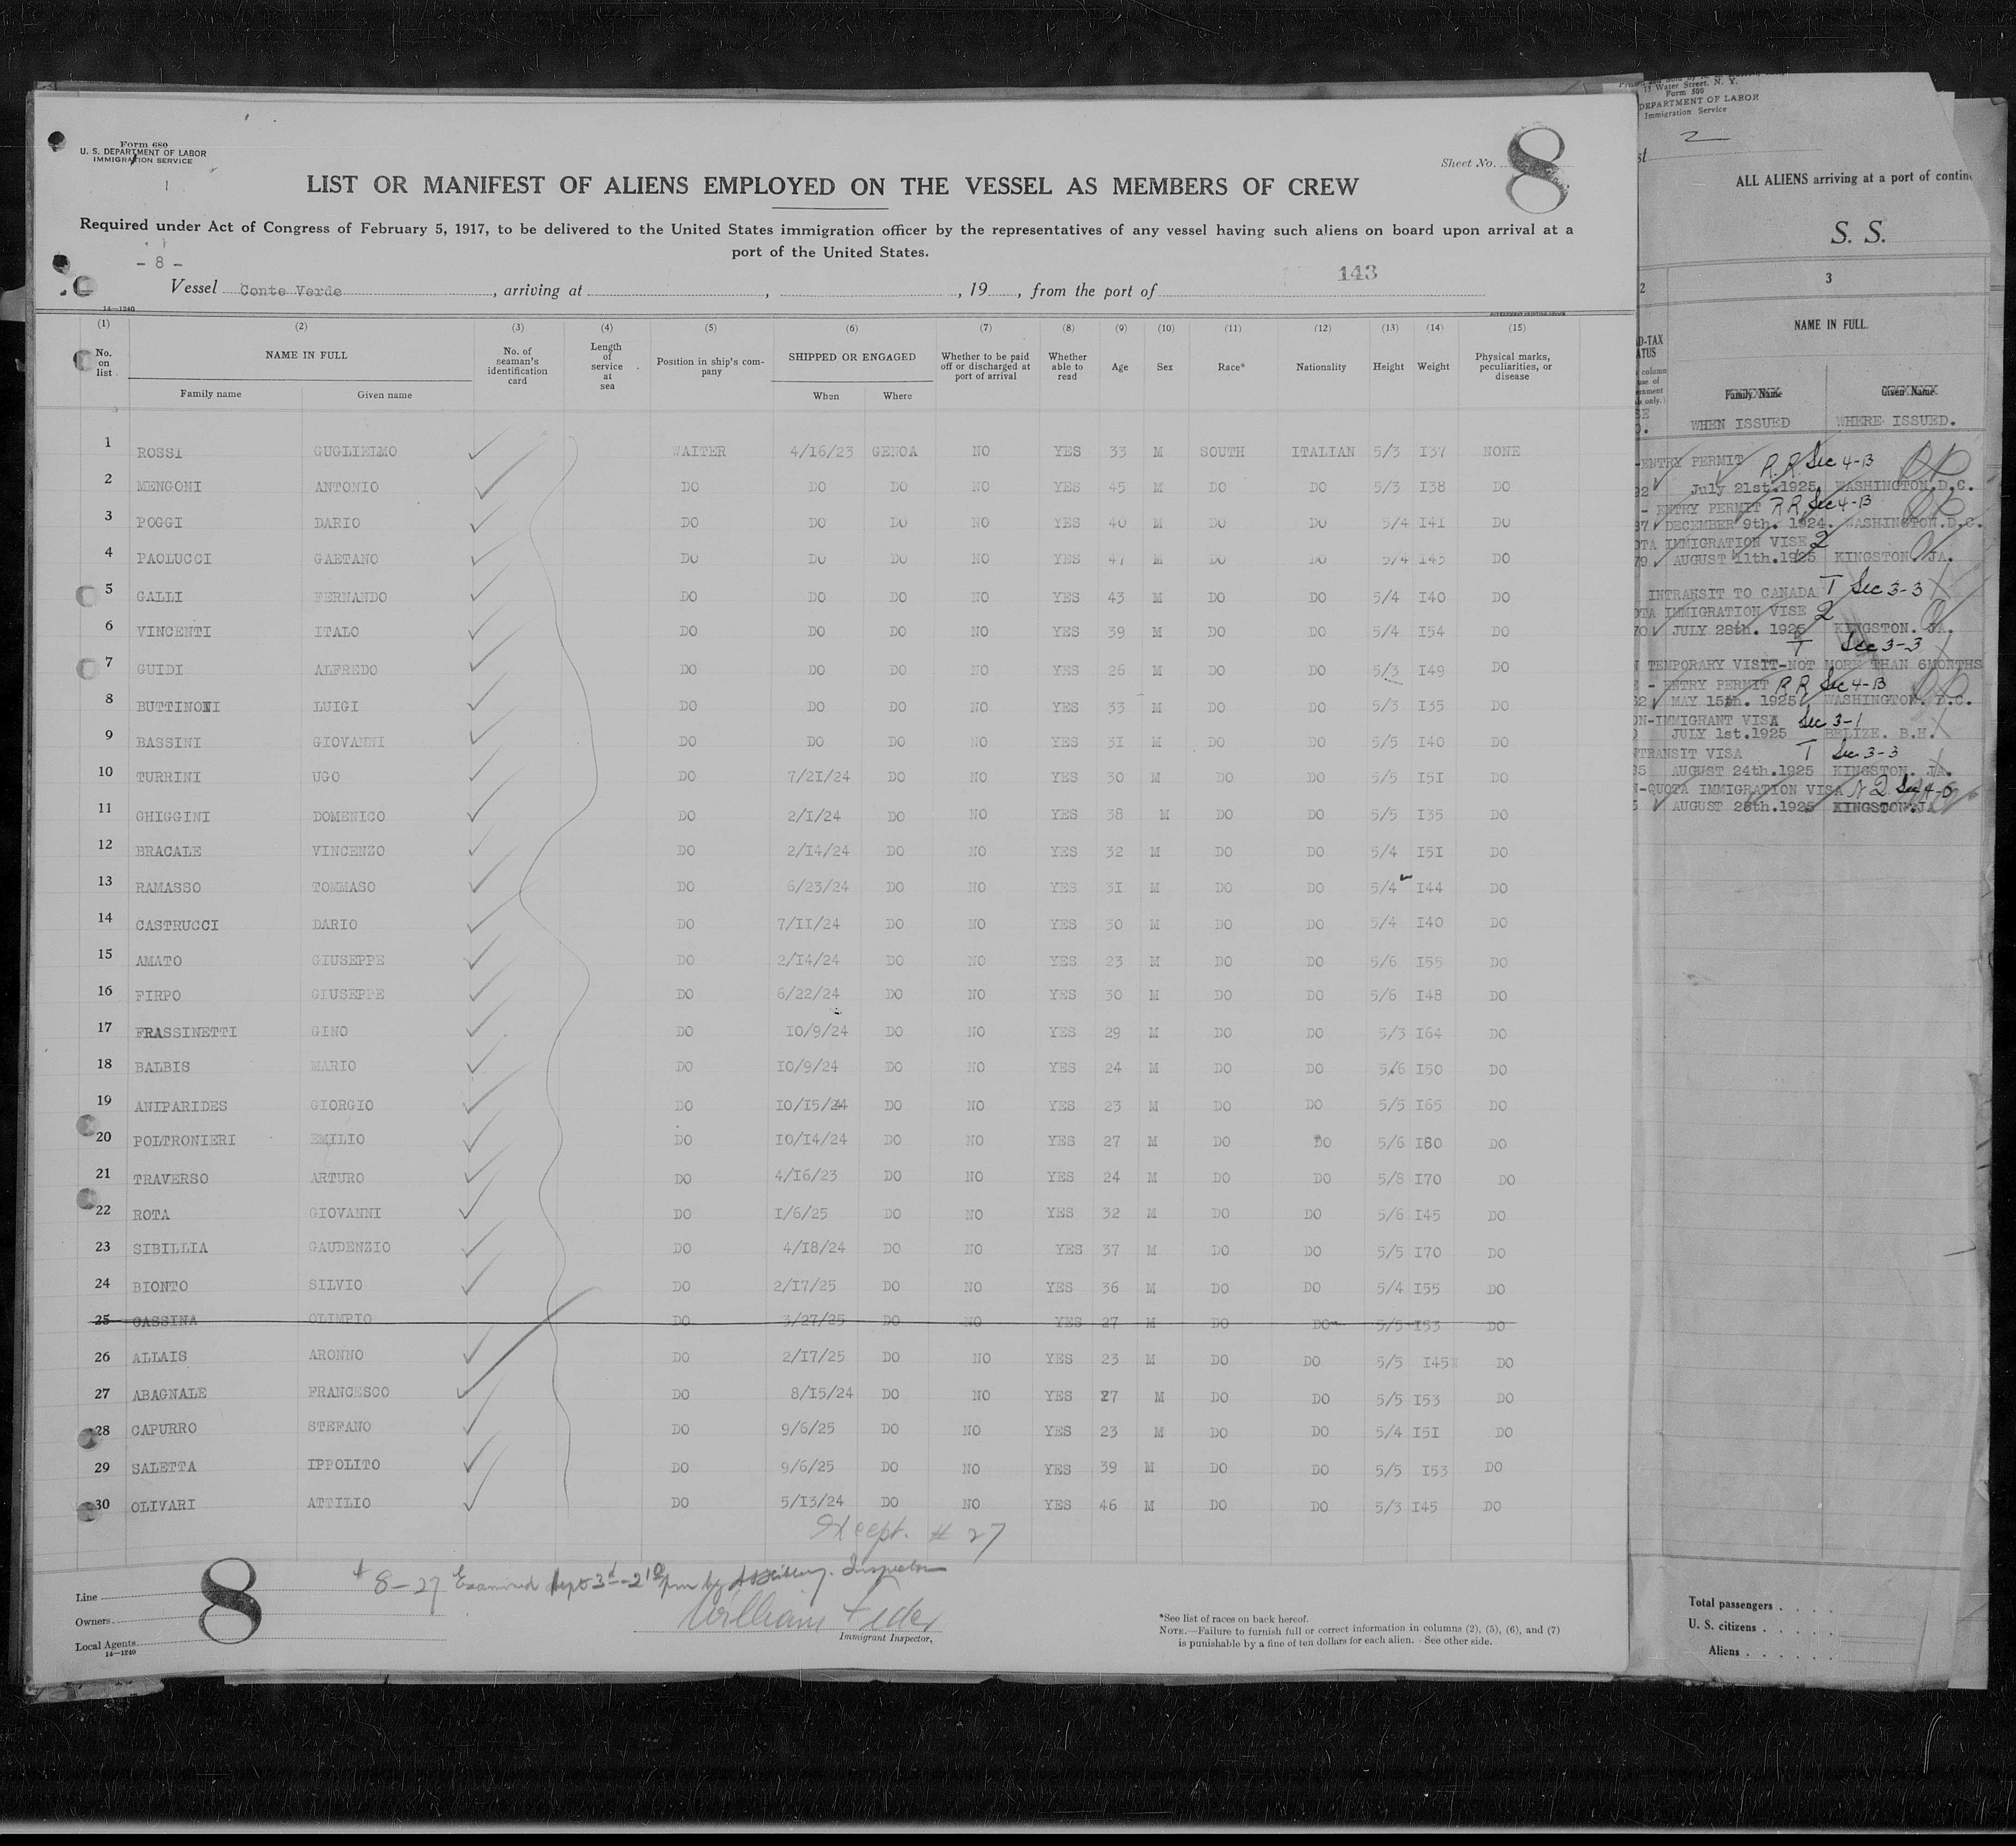 Form 680
U. S. DEPARTMENT OF LABOR
IMMIGRATION SERVICE
Sheet No. 8
LIST OR MANIFEST OF ALIENS EMPLOYED ON THE VESSEL AS MEMBERS OF CREW
Required under Act of Congress of February 5, 1917, to be delivered to the United States immigration officer by the representatives of any vessel having such aliens on board upon arrival at a
port of the United States.
- 8 -
143
Vessel Conte Verde, arriving at , , 19 , from the port of
14—1240
(1) (2) (3) (4) (5) (6) (7) (8) (9) (10) (11) (12) (13) (14) (15)
No. on list NAME IN FULL Family name Given name No. of seaman's identification card Length of service at sea Position in ship's company SHIPPED OR ENGAGED When Where Whether to be paid off or discharged at port of arrival Whether able to read Age Sex Race* Nationality Height Weight Physical marks, peculiarities, or disease
1 ROSSI GUGLIELMO WAITER 4/16/23 GENOA NO YES 33 M SOUTH ITALIAN 5/3 I37 NONE
2 MENGONI ANTONIO DO DO DO NO YES 45 M DO DO 5/3 I38 DO
3 POGGI DARIO DO DO DO NO YES 40 M DO DO 5/4 I41 DO
4 PAOLUCCI GAETANO DO DO DO NO YES 47 M DO DO 5/4 I43 DO
5 GALLI FERNANDO DO DO DO NO YES 43 M DO DO 5/4 I40 DO
6 VINCENTI ITALO DO DO DO NO YES 39 M DO DO 5/4 I54 DO
7 GUIDI ALFREDO DO DO DO NO YES 26 M DO DO 5/3 I49 DO
8 BUTTINONI LUIGI DO DO DO NO YES 33 M DO DO 5/3 I35 DO
9 BASSINI GIOVANNI DO DO DO NO YES 3I M DO DO 5/5 I40 DO
10 TURRINI UGO DO 7/2I/24 DO NO YES 30 M DO DO 5/5 I5I DO
11 GHIGGINI DOMENICO DO 2/I/24 DO NO YES 38 M DO DO 5/5 I35 DO
12 BRACALE VINCENZO DO 2/I4/24 DO NO YES 32 M DO DO 5/4 I5I DO
13 RAMASSO TOMMASO DO 6/23/24 DO NO YES 3I M DO DO 5/4 I44 DO
14 CASTRUCCI DARIO DO 7/II/24 DO NO YES 30 M DO DO 5/4 I40 DO
15 AMATO GIUSEPPE DO 2/I4/24 DO NO YES 23 M DO DO 5/6 I55 DO
16 FIRPO GIUSEPPE DO 6/22/24 DO NO YES 30 M DO DO 5/6 I48 DO
17 FRASSINETTI GINO DO IO/9/24 DO NO YES 29 M DO DO 5/3 I64 DO
18 BALBIS MARIO DO IO/9/24 DO NO YES 24 M DO DO 5/6 I50 DO
19 ANIPARIDES GIORGIO DO IO/I5/24 DO NO YES 23 M DO DO 5/5 I65 DO
20 POLTRONIERI EMILIO DO IO/I4/24 DO NO YES 27 M DO DO 5/6 I80 DO
21 TRAVERSO ARTURO DO 4/I6/23 DO NO YES 24 M DO DO 5/8 I70 DO
22 ROTA GIOVANNI DO I/6/25 DO NO YES 32 M DO DO 5/6 I45 DO
23 SIBILLIA GAUDENZIO DO 4/I8/24 DO NO YES 37 M DO DO 5/5 I70 DO
24 BIONTO SILVIO DO 2/I7/25 DO NO YES 36 M DO DO 5/4 I55 DO
25 CASSINA OLIMPIO DO 3/27/25 DO NO YES 27 M DO DO 5/5 I53 DO
26 ALLAIS ARONNO DO 2/I7/25 DO NO YES 23 M DO DO 5/5 I45 DO
27 ABAGNALE FRANCESCO DO 8/I5/24 DO NO YES 27 M DO DO 5/5 I53 DO
28 CAPURRO STEFANO DO 9/6/25 DO NO YES 23 M DO DO 5/4 I5I DO
29 SALETTA IPPOLITO DO 9/6/25 DO NO YES 39 M DO DO 5/5 I53 DO
30 OLIVARI ATTILIO DO 5/I3/24 DO NO YES 46 M DO DO 5/3 I45 DO
Except. # 27
8-27 Examined Sept 3d - 2 10 pm by Inspector
Line
Owners
Local Agents
14—1240
8
William
Immigrant Inspector.
*See list of races on back hereof.
NOTE.—Failure to furnish full or correct information in columns (2), (5), (6), and (7)
is punishable by a fine of ten dollars for each alien. See other side.
13 Water Street, N. Y.
Form 500
DEPARTMENT OF LABOR
Immigration Service
2
ALL ALIENS arriving at a port of contin
S. S.
2 3
NAME IN FULL
Family Name Given Name
WHEN ISSUED WHERE ISSUED.
ENTRY PERMIT R.R. Sec 4-B
July 21st.1925 WASHINGTON.D.C.
- ENTRY PERMIT R R Sec 4-B
37 DECEMBER 9th. 1924. WASHINGTON.D.C.
OTA IMMIGRATION VISE 2
79 AUGUST 11th.1925 KINGSTON. JA.
INTRANSIT TO CANADA T Sec 3-3
OTA IMMIGRATION VISE 2
70 JULY 28th. 1925 KINGSTON. JA.
T Sec 3-3
TEMPORARY VISIT-NOT MORE THAN 6MONTHS
- ENTRY PERMIT R R Sec 4-B
52 MAY 15th. 1925 WASHINGTON. D.C.
ON-IMMIGRANT VISA Sec 3-1
JULY 1st.1925 BELIZE. B.H.
TRANSIT VISA T Sec 3-3
35 AUGUST 24th.1925 KINGSTON. JA.
N-QUOTA IMMIGRATION VISA N Q Sec 4-
AUGUST 28th.1925 KINGSTON.JA
Total passengers
U. S. citizens
Aliens